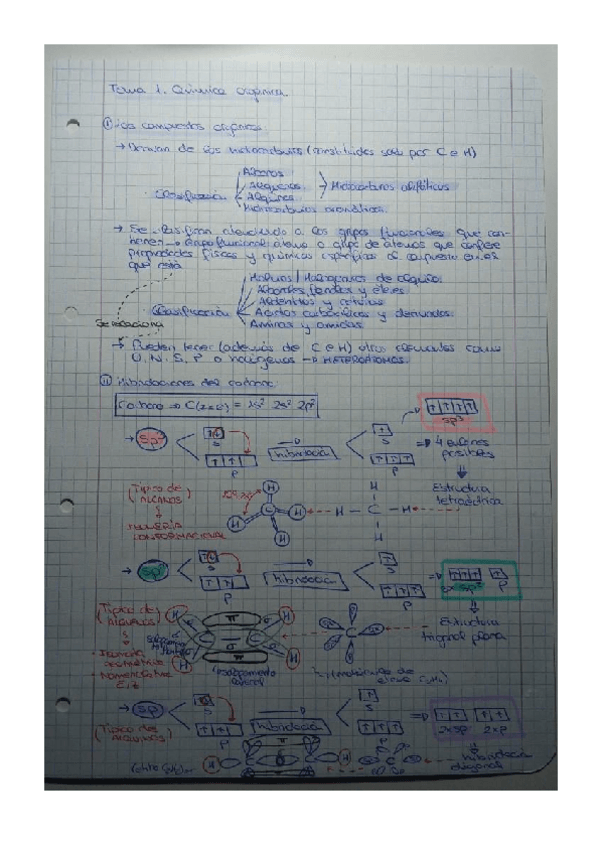 Tema 1. Química orgánica
I Los compuestos orgánicos
→ Derivan de los hidrocarburos (constituidos solo por C e H)
Clasificación
Alcanos
Alquenos
Alquinos
→ Hidrocarburos alifáticos
Hidrocarburos aromáticos
→ Se clasifican atendiendo a los grupos funcionales que con-
tienen → Grupo funcional: átomo o grupo de átomos que confiere
propiedades físicas y químicas específicas al compuesto en el
que está
Clasificación
Haluros / Halogenuros de alquilo
Alcoholes, fenoles y éteres
Aldehídos y cetonas
Ácidos carboxílicos y derivados
Aminas y amidas
Se relaciona
→ Pueden tener (además de C e H) otros elementos como
O, N, S, P o halógenos → HETEROÁTOMOS
II Hibridaciones del carbono
Carbono → C(z=6) = 1s² 2s² 2p²
→ sp³
s
p
hibridación
s
p
sp³
⇒ 4 enlaces
posibles
Estructura
tetraédrica
(Típico de
ALCANOS)
ISOMERÍA
CONFORMACIONAL
H
H
C
H
H
H
H – C – H
H
→ sp²
s
p
hibridación
s
p
sp²
p
Estructura
trigonal plana
(Típico de
alquenos)
Isomería
geométrica
Nomenclatura
E/Z
H
H
C
C
H
H
π
σ
π
Solapamiento
lateral
→ sp
s
p
hibridación
s
p
2xsp
2xp
(Típico de
alquinos)
hibridación
diagonal
H
H